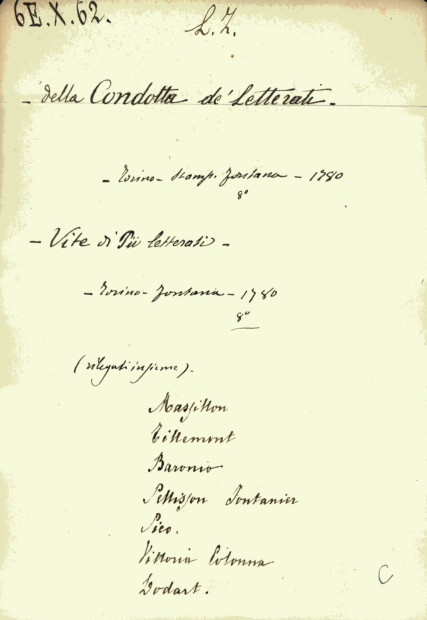 6E.X.62.
L.Z.
- della Condotta de' Letterati -
- Torino - Stamp. Fontana - 1780
8°
- Vite di Più letterati -
- Torino - Fontana - 1780
8°
(rilegati insieme).
Massillon
Tillemont
Baronio
Pellisson Fontanier
Pico.
Vittoria Colonna
Godart.
C